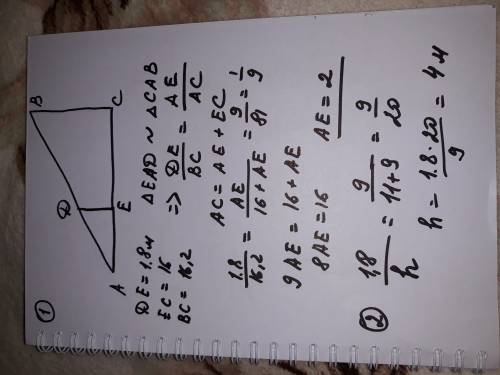 ①
B
C
D
E
A
DE = 1.8 м
EC = 16
BC = 16,2
△EAD ~ △CAB
=> DE/BC = AE/AC
AC = AE + EC
1.8/16,2 = AE/(16+AE) = 9/81 = 1/9
9AE = 16 + AE
8AE = 16 AE = 2
② 1,8/h = 9/(11+9) = 9/20
h = 1.8·20/9 = 4 м